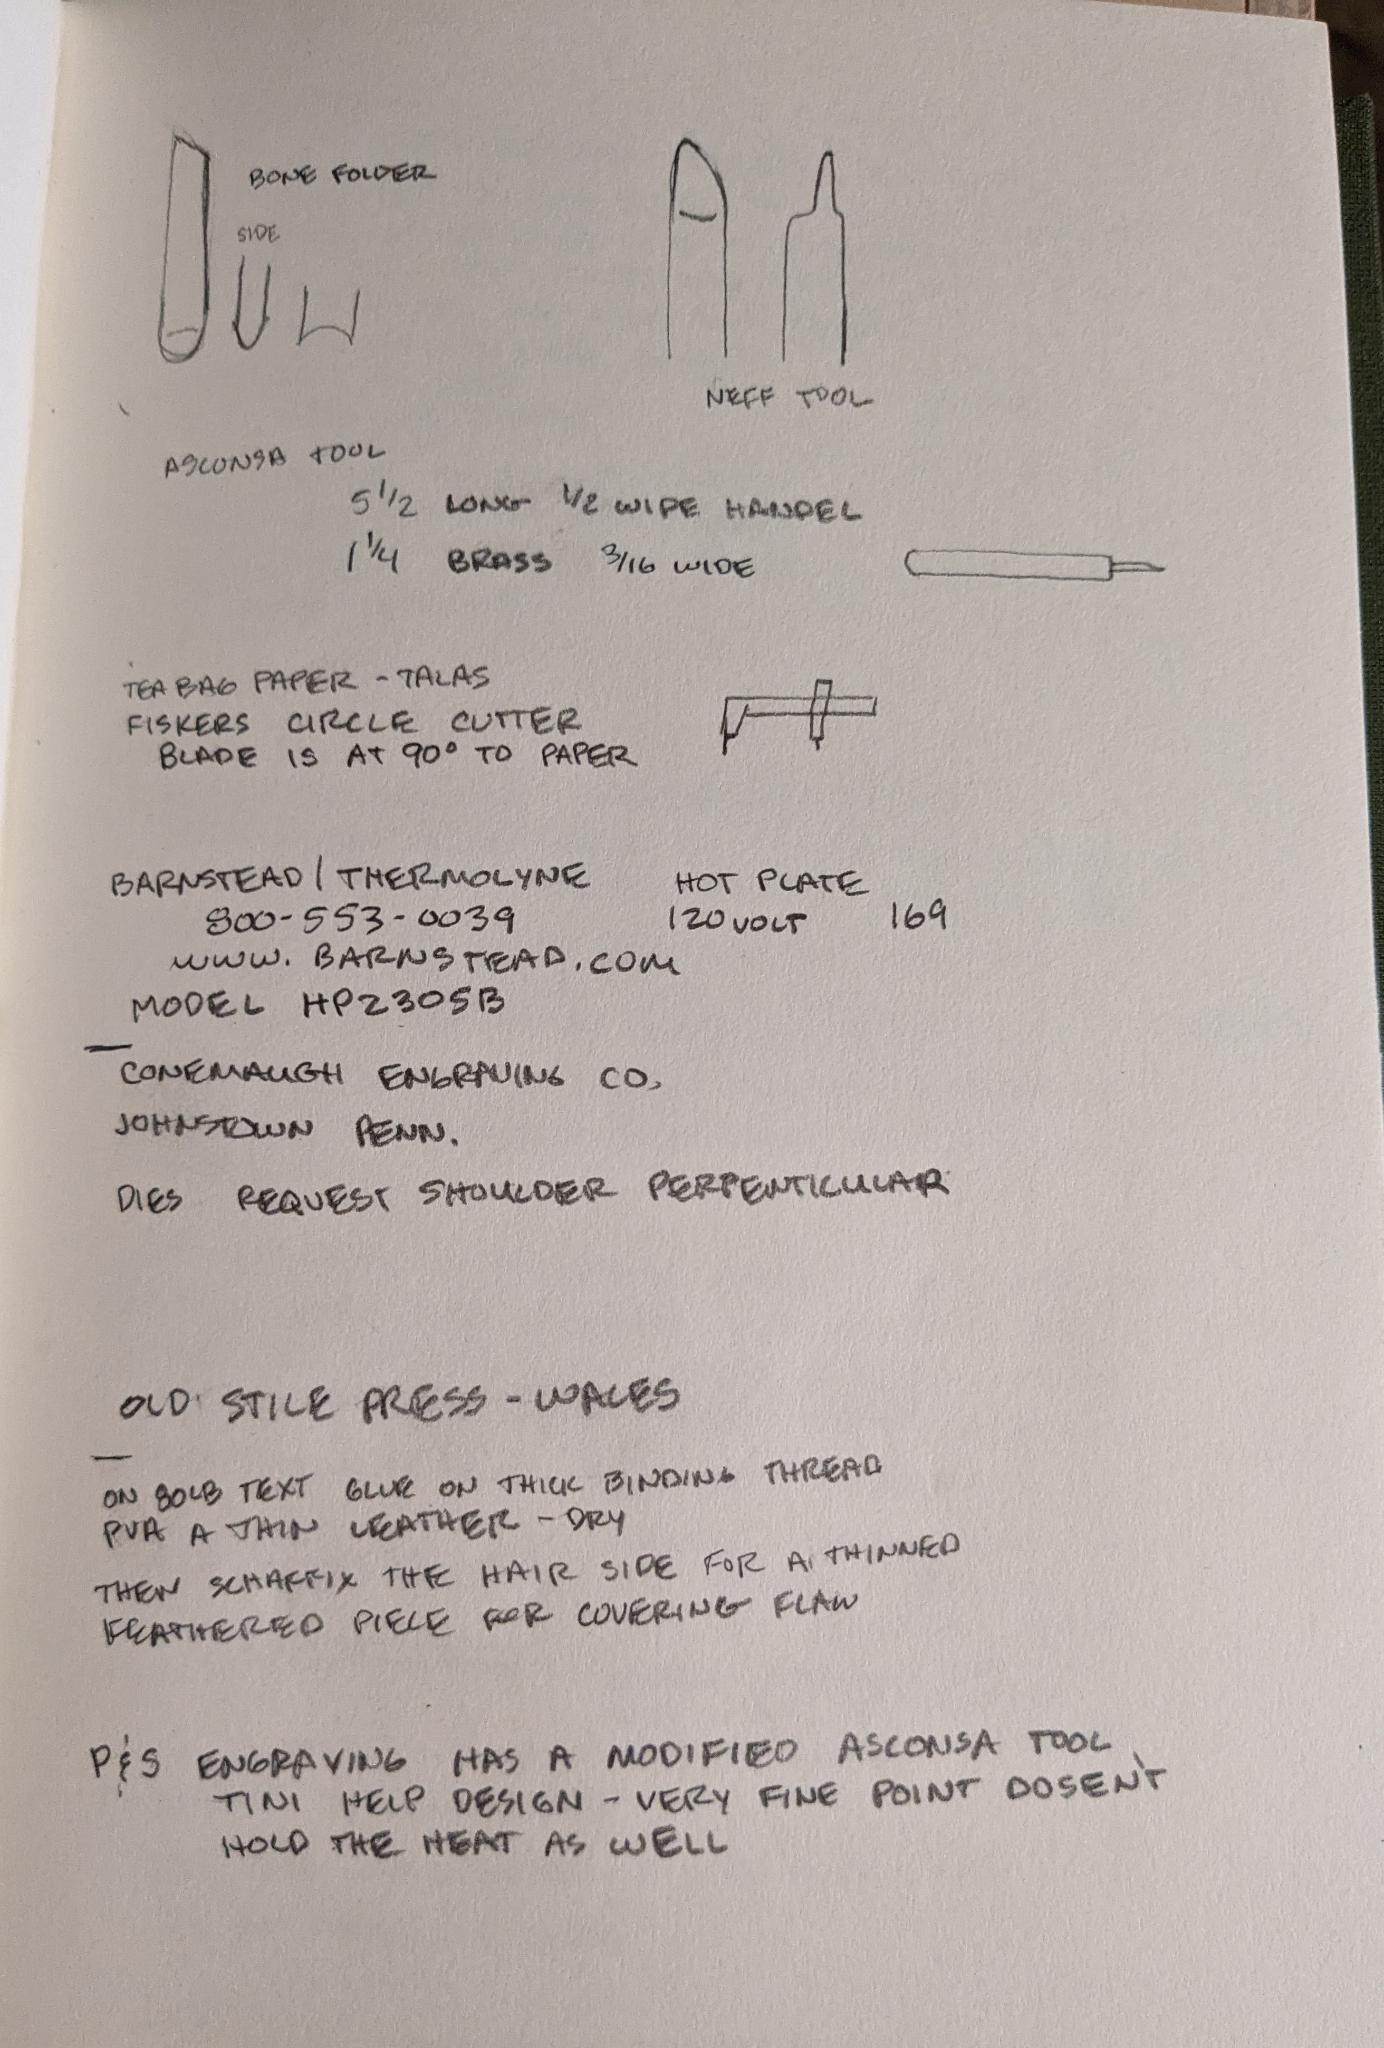 BONE FOLDER
SIDE
NEFF TOOL
ASCONSA TOOL
5 1/2 LONG 1/2 WIDE HANDEL
1 1/4 BRASS 3/16 WIDE
TEA BAG PAPER - TALAS
FISKERS CIRCLE CUTTER
BLADE IS AT 90° TO PAPER
BARNSTEAD / THERMOLYNE HOT PLATE
800-553-0039 120 VOLT 169
WWW. BARNSTEAD.COM
MODEL HP2305B
CONEMAUGH ENGRAVING CO.
JOHNSTOWN PENN.
DIES REQUEST SHOULDER PERPENTICULAR
OLD STILE PRESS - WALES
ON 80LB TEXT GLUE ON THICK BINDING THREAD
PVA A THIN LEATHER - DRY
THEN SCHAFFIX THE HAIR SIDE FOR A THINNED
FEATHERED PIECE FOR COVERING FLAW
P & S ENGRAVING HAS A MODIFIED ASCONSA TOOL
TINI HELP DESIGN - VERY FINE POINT DOSEN'T
HOLD THE HEAT AS WELL